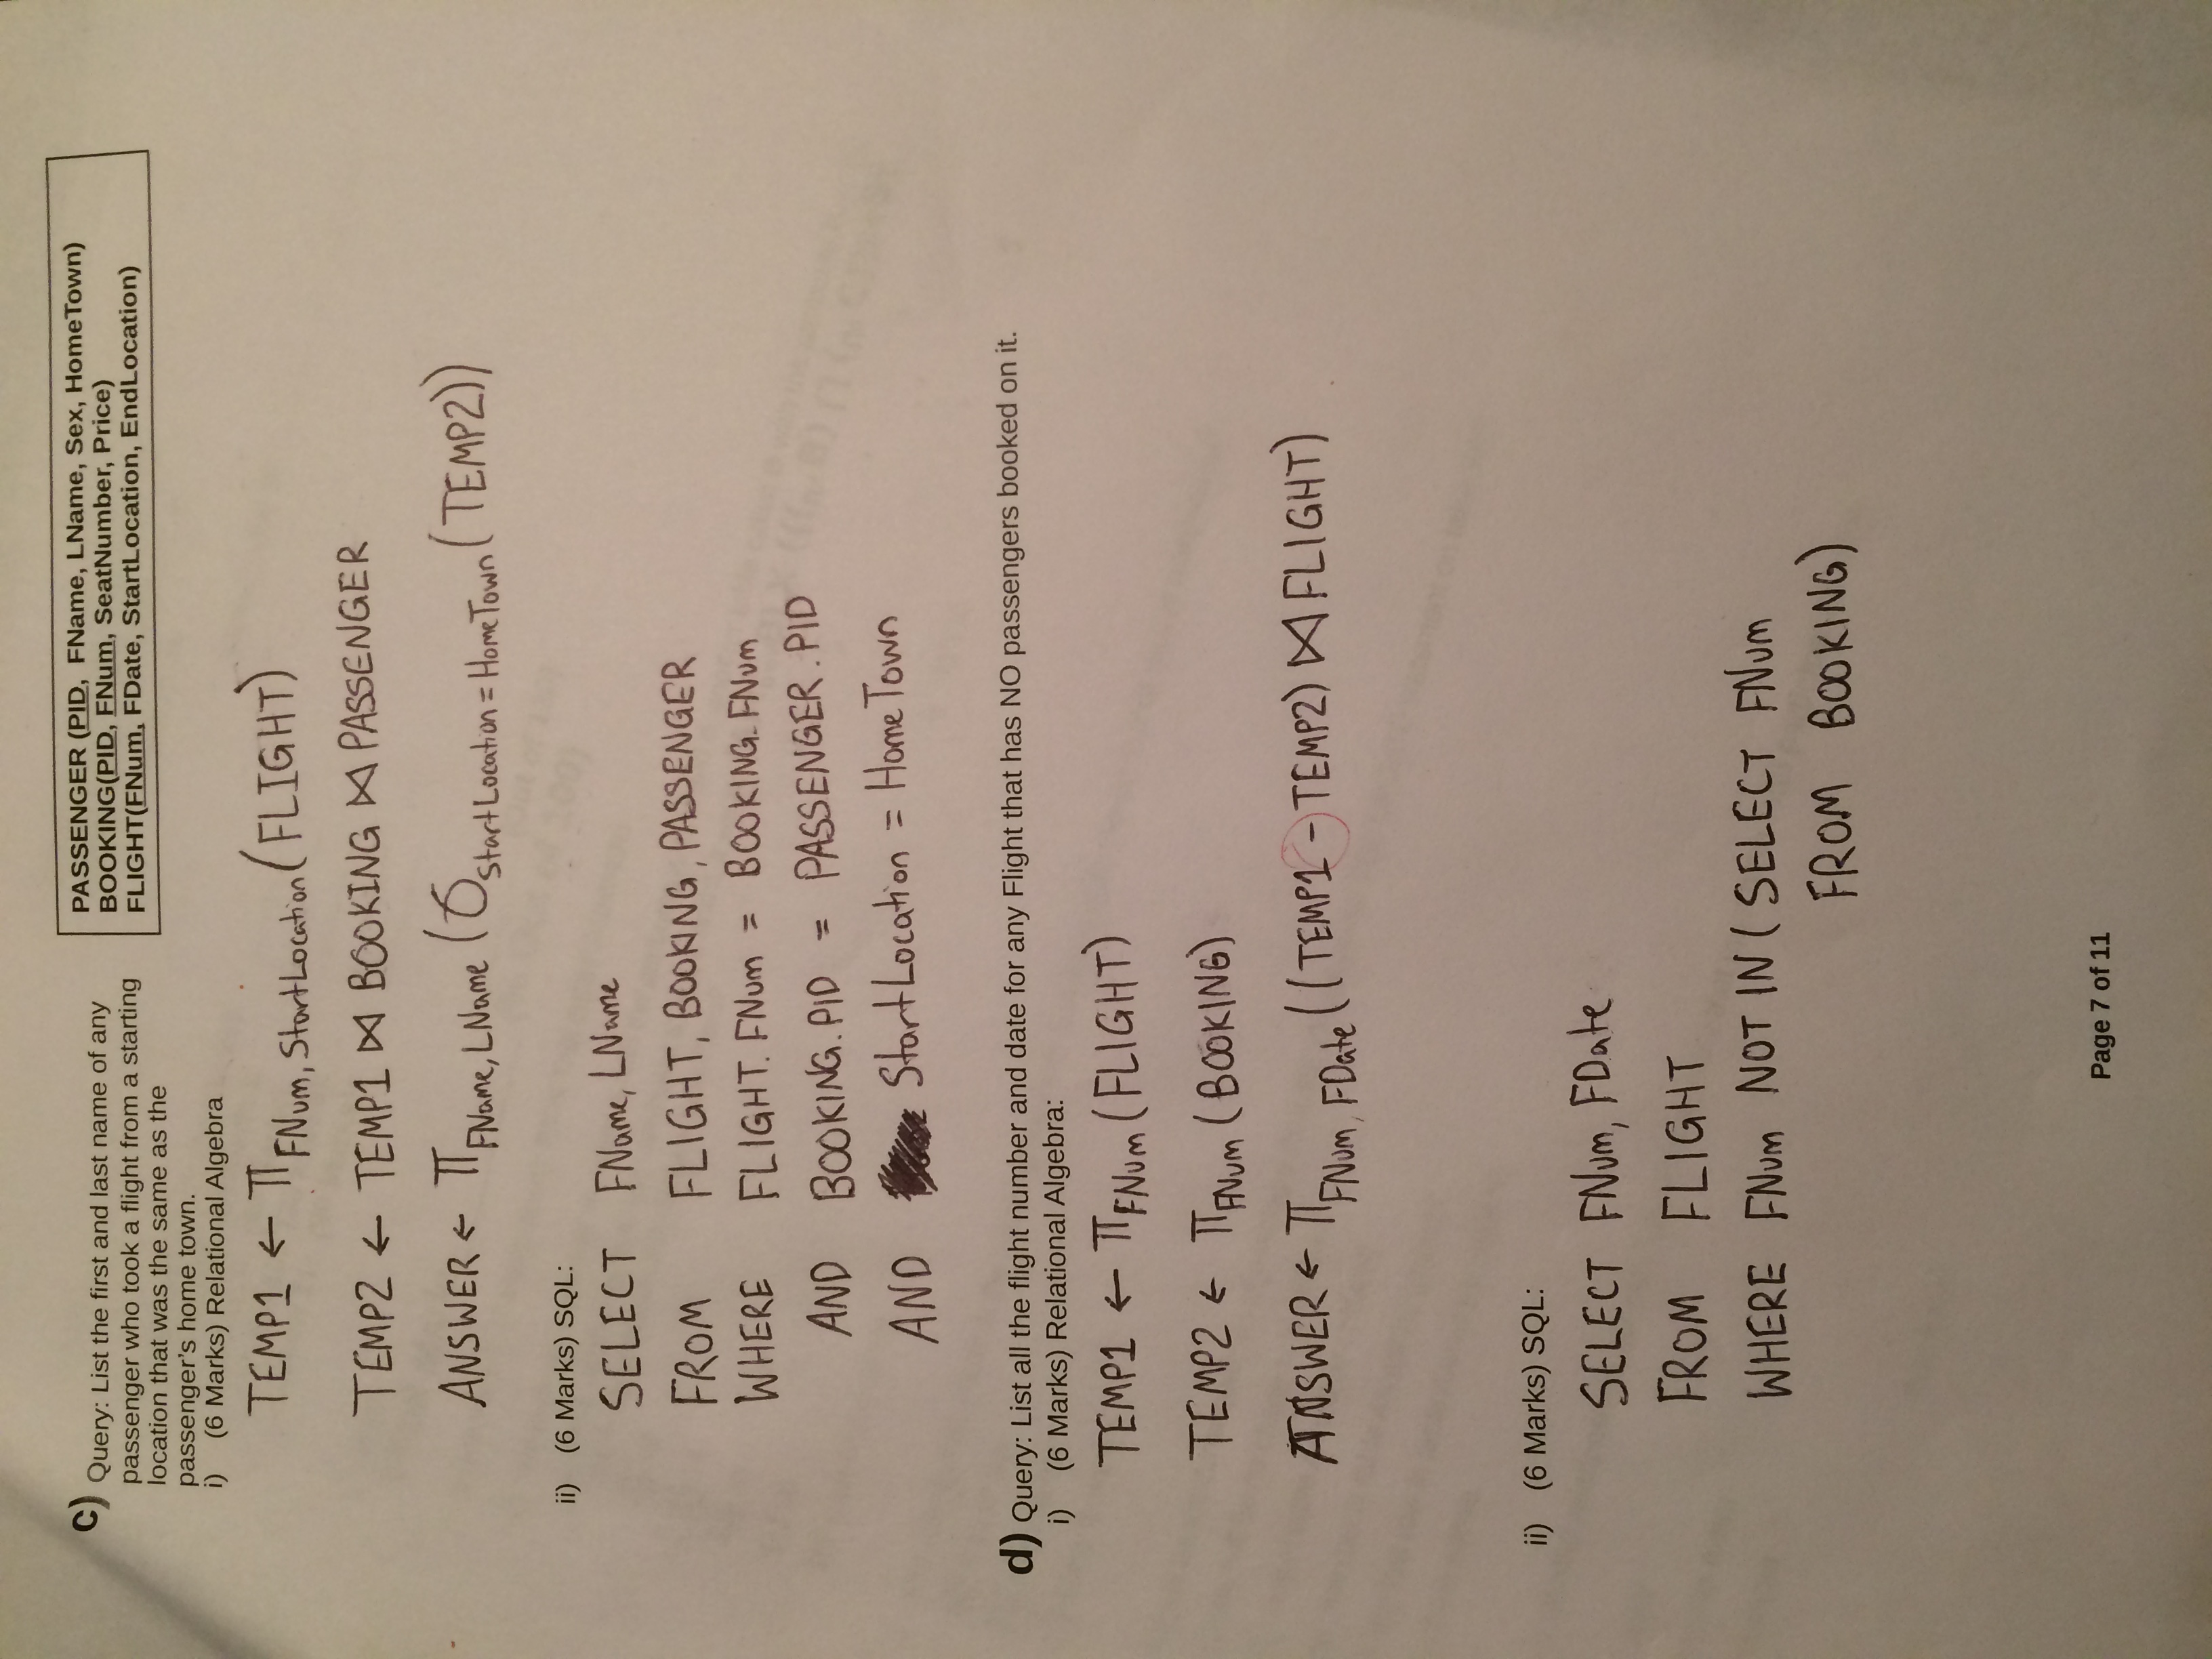 c) Query: List the first and last name of any
passenger who took a flight from a starting
location that was the same as the
passenger's home town.
PASSENGER (PID, FName, LName, Sex, HomeTown)
BOOKING(PID, FNum, SeatNumber, Price)
FLIGHT(FNum, FDate, StartLocation, EndLocation)
i) (6 Marks) Relational Algebra
TEMP1 ← π FNum, StartLocation (FLIGHT)
TEMP2 ← TEMP1 ⋈ BOOKING ⋈ PASSENGER
ANSWER ← π FName, LName (σ StartLocation = HomeTown (TEMP2))
ii) (6 Marks) SQL:
SELECT FName, LName
FROM FLIGHT, BOOKING, PASSENGER
WHERE FLIGHT.FNum = BOOKING.FNum
AND BOOKING.PID = PASSENGER.PID
AND StartLocation = HomeTown
d) Query: List all the flight number and date for any Flight that has NO passengers booked on it.
i) (6 Marks) Relational Algebra:
TEMP1 ← π FNum (FLIGHT)
TEMP2 ← π FNum (BOOKING)
ANSWER ← π FNum, FDate ((TEMP1 - TEMP2) ⋈ FLIGHT)
ii) (6 Marks) SQL:
SELECT FNum, FDate
FROM FLIGHT
WHERE FNum NOT IN (SELECT FNum
FROM BOOKING)
Page 7 of 11